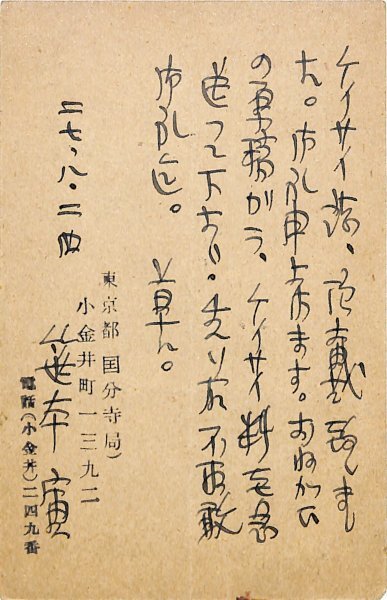 ケイサイ誌、頂戴致しまし
た。御礼申上げます。おねがい
の事務がら、ケイサイ料を急
送って下さい。先は右不取敢
御礼迄。 草々。
二七、八、二四
東京都(国分寺局)
小金井町一三九二
笹本寅
電話(小金井)二四九番